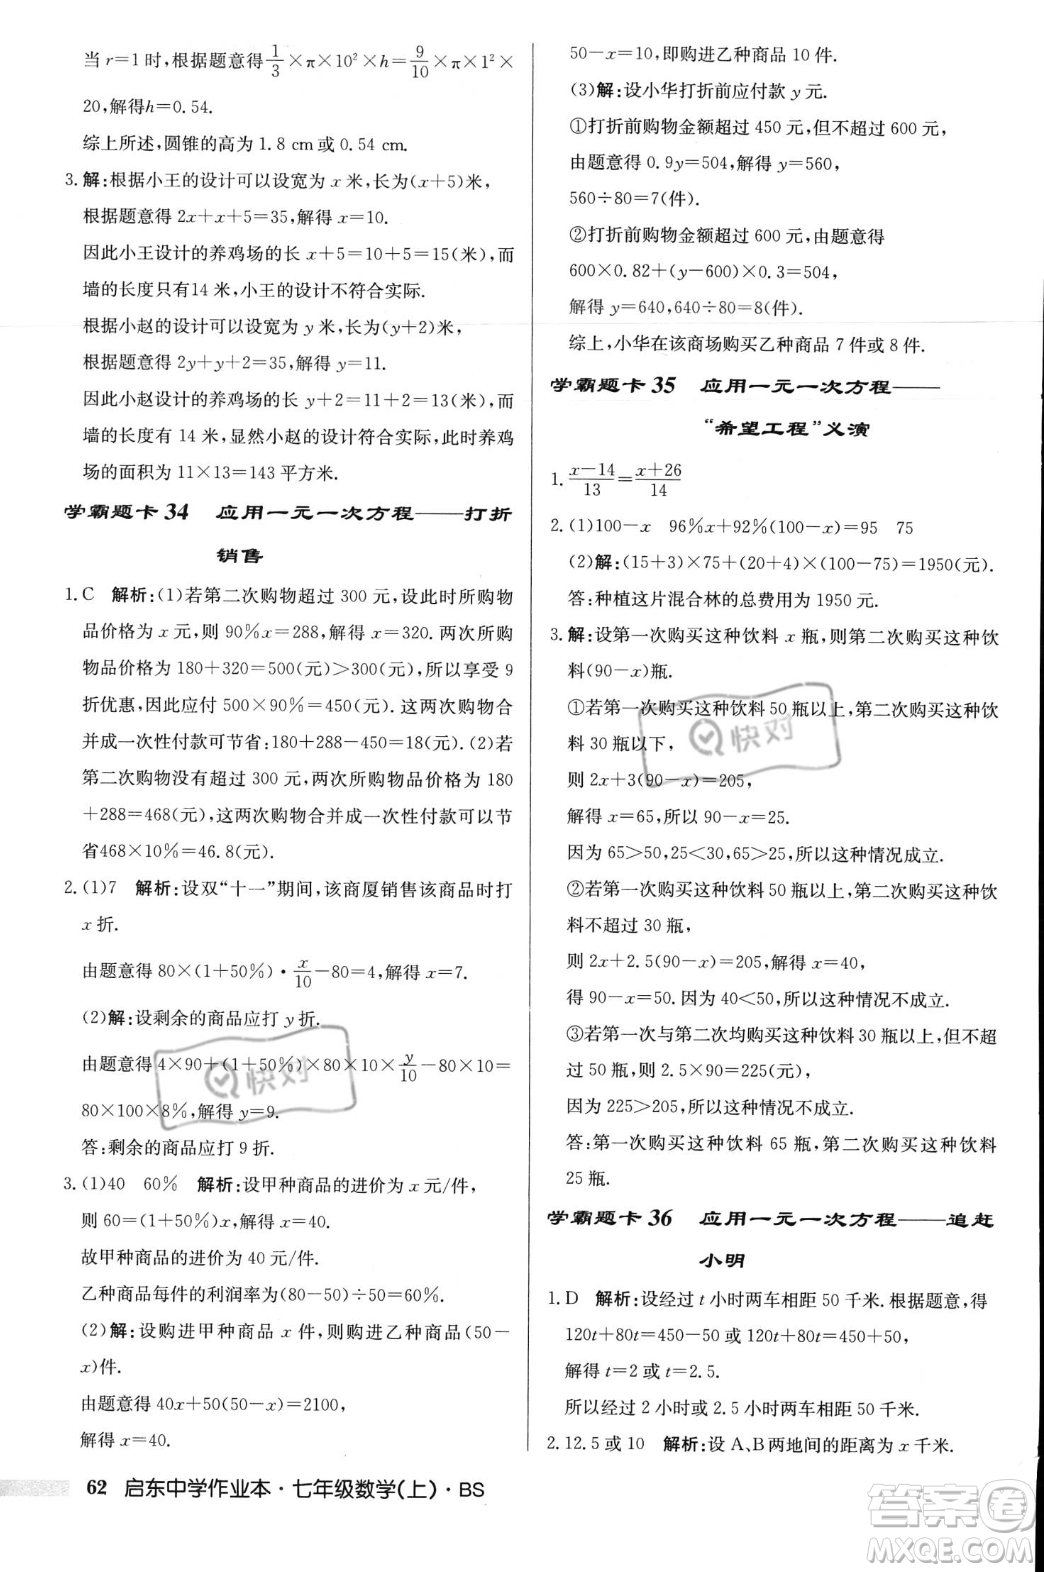 当 r=1 时,根据题意得 1/3×π×10²×h=9/10×π×1²×
20,解得h=0.54.
综上所述,圆锥的高为 1.8 cm或 0.54 cm.
3.解:根据小王的设计可以设宽为 x 米,长为(x+5)米,
根据题意得 2x+x+5=35,解得 x=10.
因此小王设计的养鸡场的长 x+5=10+5(米),而
墙的长度只有14 米,小王的设计不符合实际.
根据小赵的设计可以设宽为 y 米,长为(y+2)米,
根据题意得 2y+y+2=35,解得 y=11.
因此小赵设计的养鸡场的长 y+2=11+2=13(米),而
墙的长度为 14 米,显然小赵的设计符合实际,此时养鸡
场的面积为 11×13=143 平方米.
学霸题卡 34 应用一元一次方程——打折
销售
1.C 解析:(1)若第二次购物超过 300 元,设此时所购物
品价格为 x 元,则 90%x=288,解得 x=320.两次所购
物品价格为 180+320=500(元)>300(元),所以享受 9
折优惠,因此应付 500×90%=450(元).两次购物合
并成一次性付款可节省:180+288-450=18(元).(2)若
第二次购物没超过 300 元,两次所购物品价格为 180
+288=468(元),这两次购物合并成一次性付款可以节
省468×10%=46.8(元).
2.(1)7 解析:设双“十一”期间,该商厦销售该商品时打
x 折.
由题意得 80×(1+50%)·x/10-80=4,解得 x=7.
(2)解:设剩余的商品应打 y 折.
由题意得 4×90+(1+50%)×80×96×y/10-80×100=
80×100×8%,解得 y=9.
答:剩余的商品应打 9 折.
3.(1)40 60% 解析:设甲种商品的进价为 x 元/件,
则 60=(1+50%)x,解得 x=40.
故甲种商品的进价为 40 元/件.
乙种商品每件的利润率为(80-50)÷50=60%.
(2)解:设购进甲种商品 x 件,则购进乙种商品(50-
x)件.
由题意得 40x+50(50-x)=2100,
解得 x=40.
50-x=10,即购进乙种商品 10 件.
(3)解:设小华打折前应付款 y 元.
①打折前购物金额超过 450 元,但不超过 600 元,
由题意得 0.9y=504,解得 y=560,
560÷80=7(件).
②打折前购物金额超过 600 元,由题意得
600×0.82+(y-600)×0.3=504,
解得 y=640,640÷80=8(件).
综上,小华在该商场购买乙种商品 7 件或 8 件.
学霸题卡 35 应用一元一次方程——
“希望工程”义演
1.x-14/13=x+26/14
2.(1)100-x 96%x+92%(100-x)=95 75
(2)解:(15+3)×75+(20+4)×(100-75)=1950(元).
答:种植这片混合林的总费用为 1950 元.
3.解:设第一次购买这种饮料 x 瓶,则第二次购买这种饮
料(90-x)瓶.
①若第一次购买这种饮料 50 瓶以上,第二次购买这种饮
料 30 瓶以下,
则 2x+3(90-x)=205,
解得 x=65,所以 90-x=25.
因为 65>50,25<30,65>25,所以这种情况成立.
②若第一次购买这种饮料 50 瓶以上,第二次购买这种饮
料不超过 30 瓶,
则 2x+2.5(90-x)=205,解得 x=40,
得 90-x=50.因为 40<50,所以这种情况不成立.
③若第一次与第二次均购买这种饮料 30 瓶以上,但不超
过 50 瓶,则 2.5×90=225(元),
因为 225>205,所以这种情况不成立.
答:第一次购买这种饮料 65 瓶,第二次购买这种饮料
25 瓶.
学霸题卡 36 应用一元一次方程——追赶
小明
1.D 解析:设经过 t 小时两车相距 50 千米.根据题意,得
120t+80t=450-50 或 120t+80t=450+50,
解得 t=2 或 t=2.5.
所以经过 2 或 2.5 小时两车相距 50 千米.
2.12.5 或 10 解析:设 A、B 两地间的距离为 x 千米.
62 启东中学作业本·七年级数学(上)·BS
快对
快对
答案圈
MXQE.COM